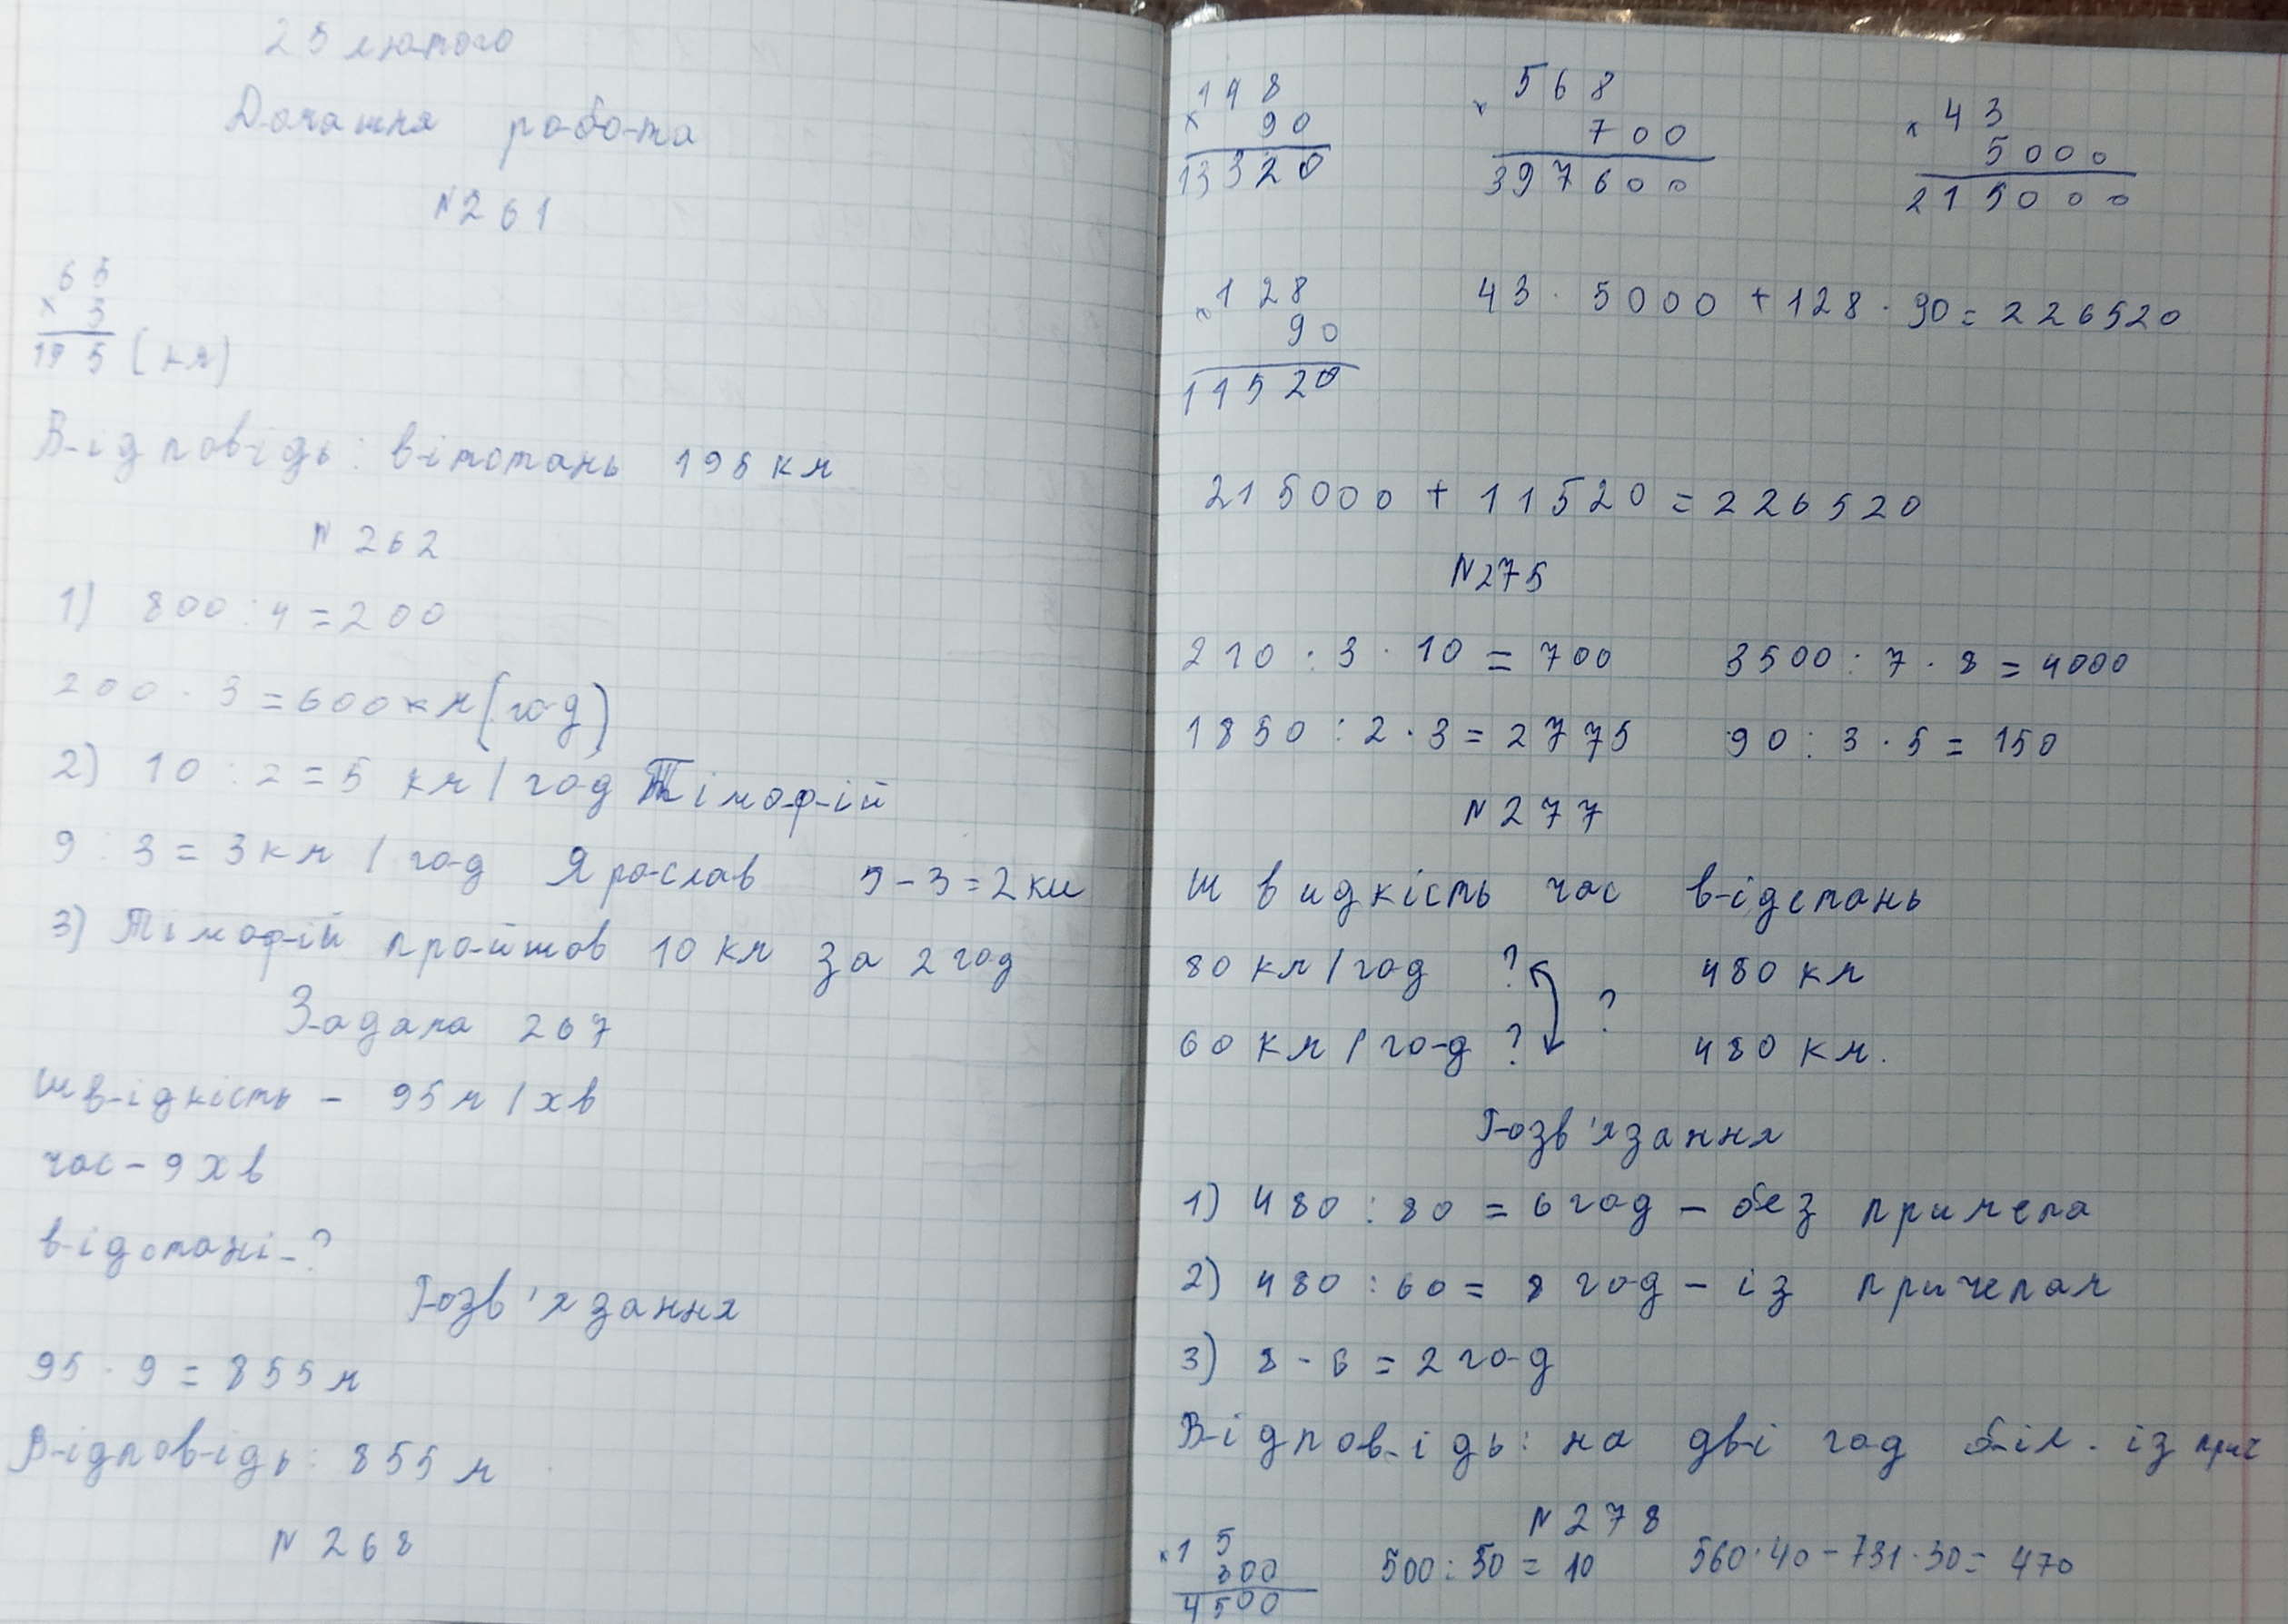 25 лютого
Домашня робота
N261
65
× 3
195 (км)
Відповідь: вітстань 195 км
N 262
1) 800 : 4 = 200
200 · 3 = 600 км (год)
2) 10 : 2 = 5 км / год Тімофій
9 : 3 = 3 км / год Ярослав 5 - 3 = 2 км
3) Тімофій пройшов 10 км за 2 год
Задача 267
Швідкість - 95 м / хв
час - 9 хв
відстані - ?
Розв'язання
95 · 9 = 855 м
Відповідь: 855 м
N 268
148
× 90
13320
568
× 700
397600
43
× 5000
215000
128
× 90
11520
43 · 5000 + 128 · 90 = 226520
215000 + 11520 = 226520
N275
210 : 3 · 10 = 700 3500 : 7 · 8 = 4000
1850 : 2 · 3 = 2775 90 : 3 · 5 = 150
N 277
Швидкість час відстань
80 км / год ? 480 км
?
60 км / год ? 480 км.
Розв'язання
1) 480 : 80 = 6 год - без причепа
2) 480 : 60 = 8 год - із причепам
3) 8 - 6 = 2 год
Відповідь: на дві год біл. із прич
N 278
15
× 300
4500
500 : 50 = 10 560 · 40 - 731 · 30 = 470